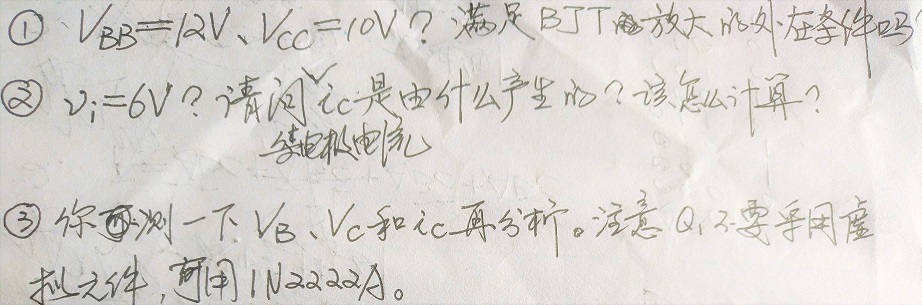 ① VBB=12V、VCC=10V？满足BJT放大的外在条件吗
② vi=6V？请问ic是由什么产生的？该怎么计算？
集电极电流
③ 你再测一下VB、VC和ic再分析。注意Q1不要采用虚
拟元件，可用1N2222A。